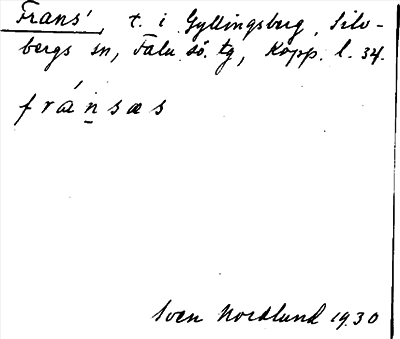 Frans' t. i Gyllingsberg, Silv-
bergs sn, Falu sö. tg, Kopp. l. 34.
fránsæs
Sven Nordlund 1930